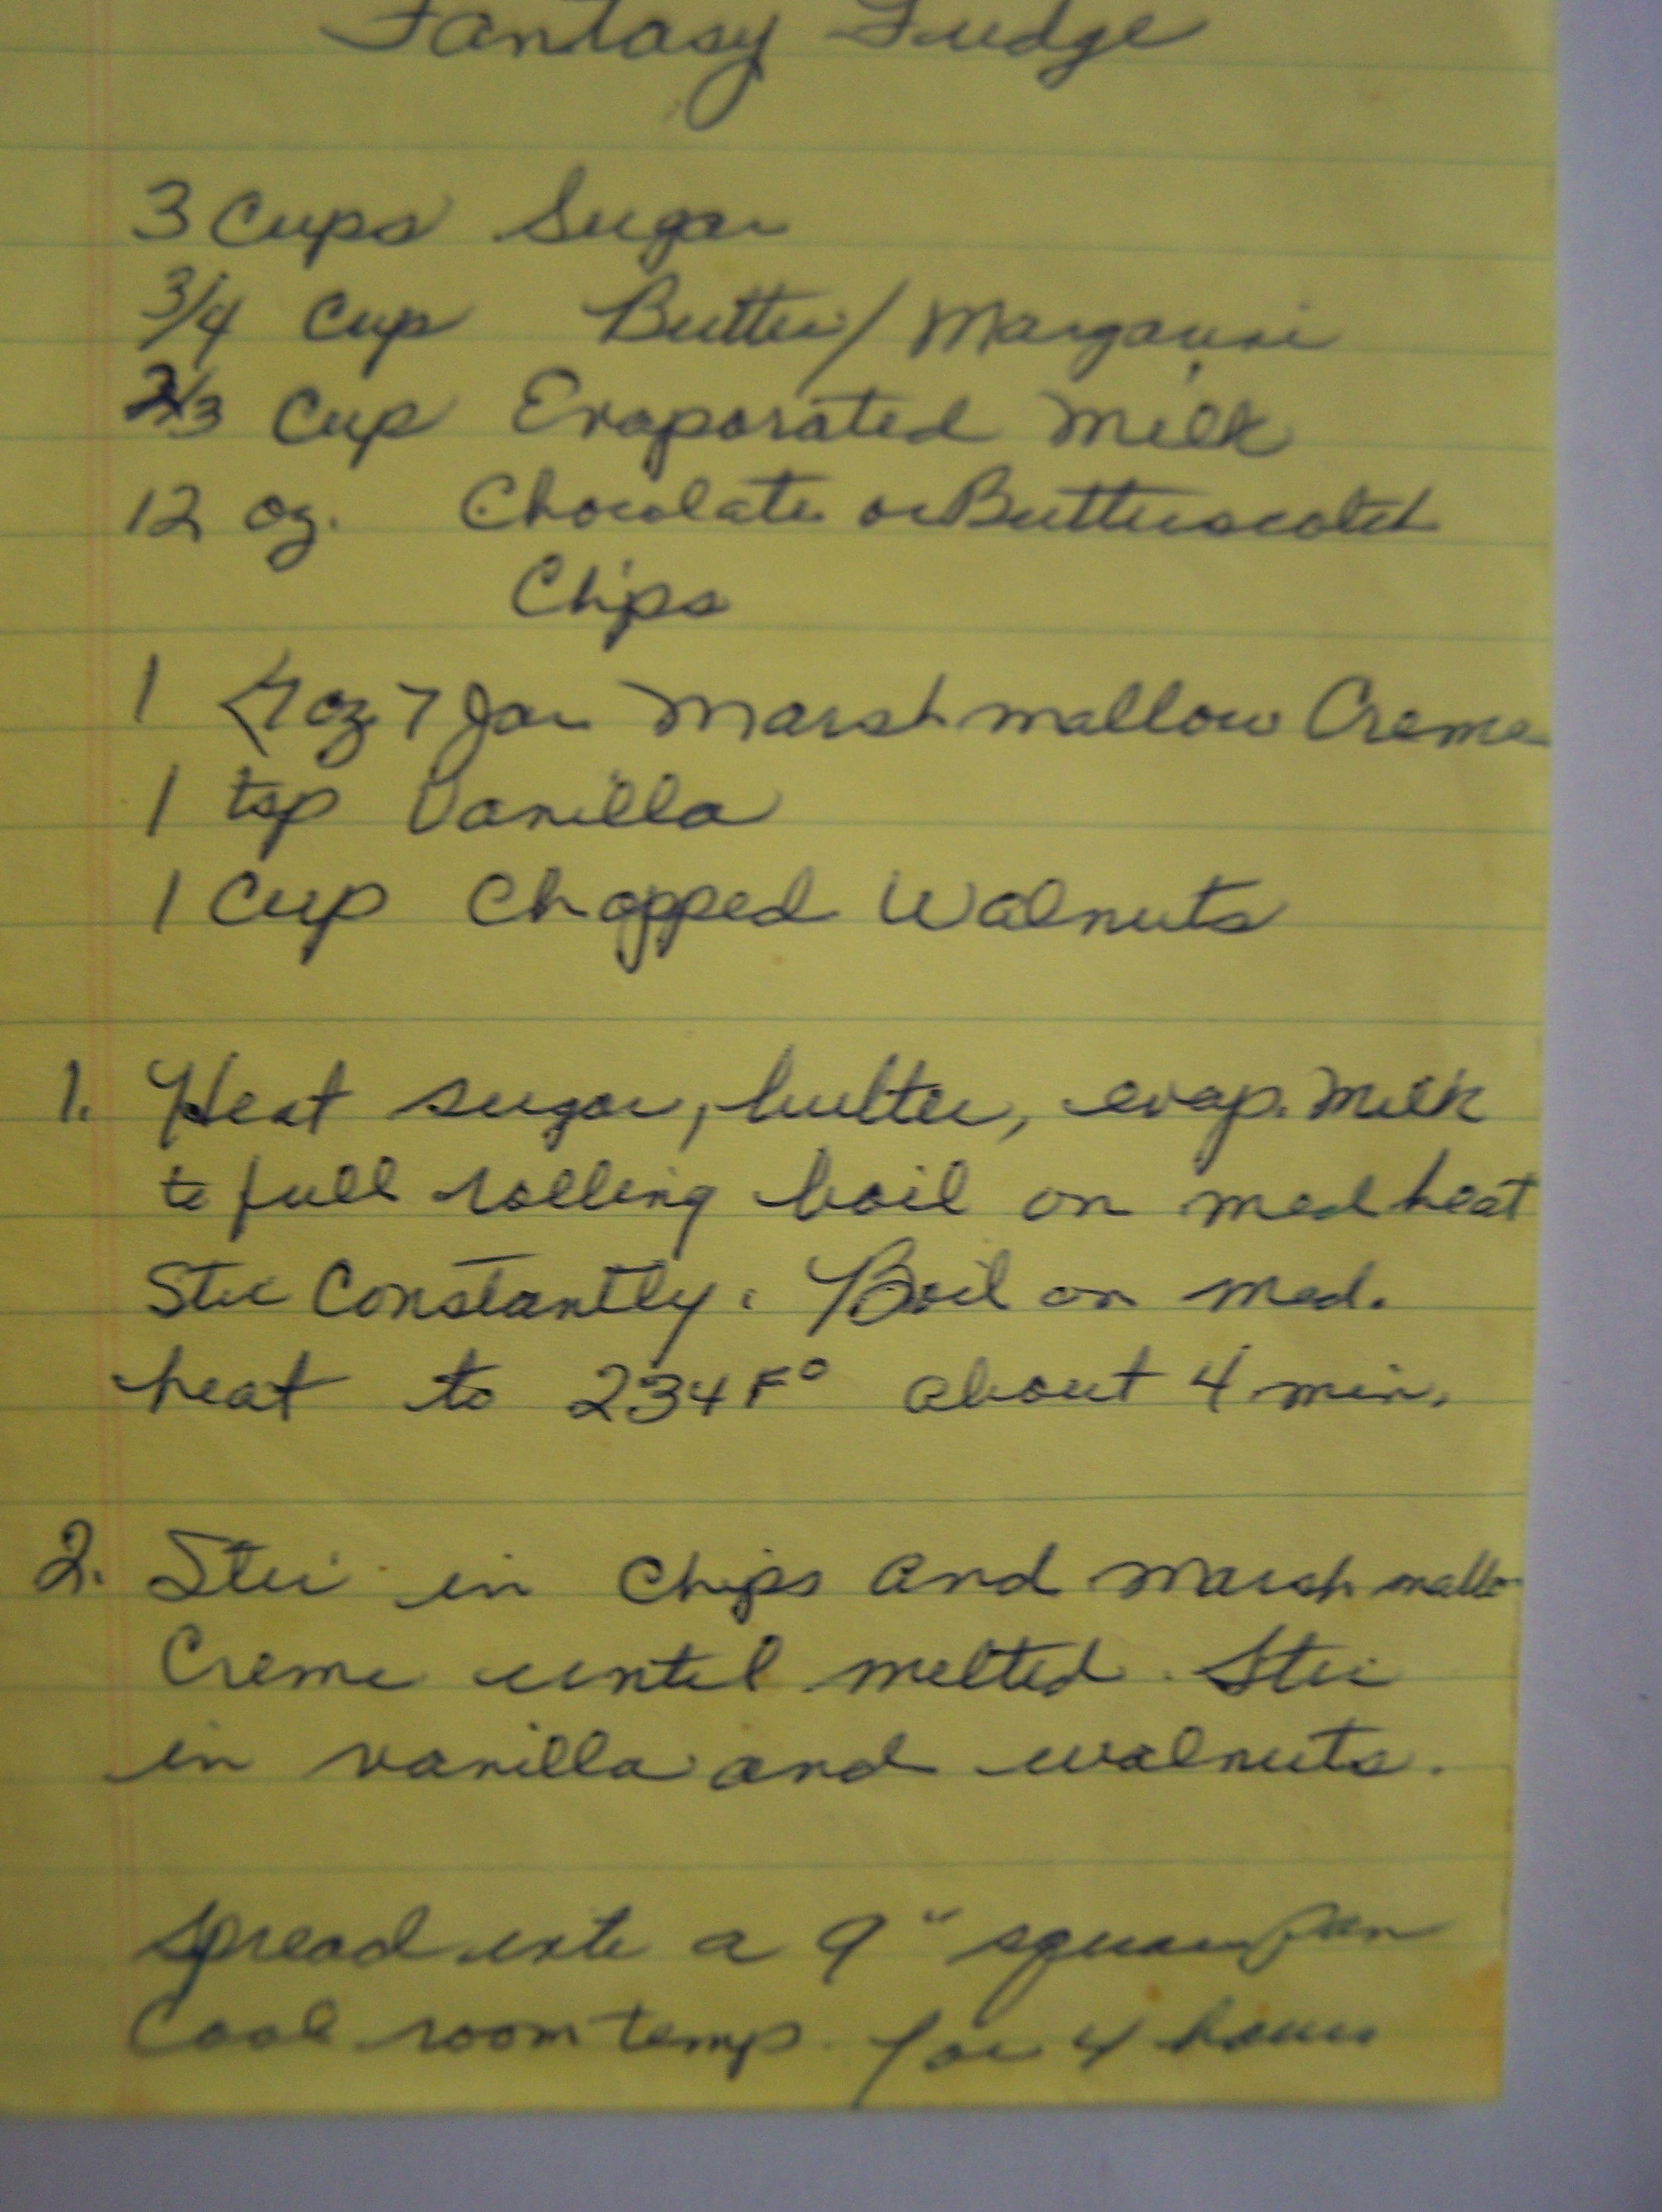 Fantasy Fudge
3 Cups Sugar
3/4 Cup Butter/Margarine
2/3 Cup Evaporated Milk
12 oz. Chocolate or Butterscotch
Chips
1 <7 oz> Jar Marshmallow Creme
1 tsp Vanilla
1 Cup Chopped Walnuts
1. Heat sugar, butter, evap. milk
to full rolling boil on med heat
Stir Constantly. Boil on med.
heat to 234 F° about 4 min.
2. Stir in Chips and Marshmallo
Creme until melted. Stir
in vanilla and walnuts.
Spread into a 9" square pan
Cool room temp. for 4 hours